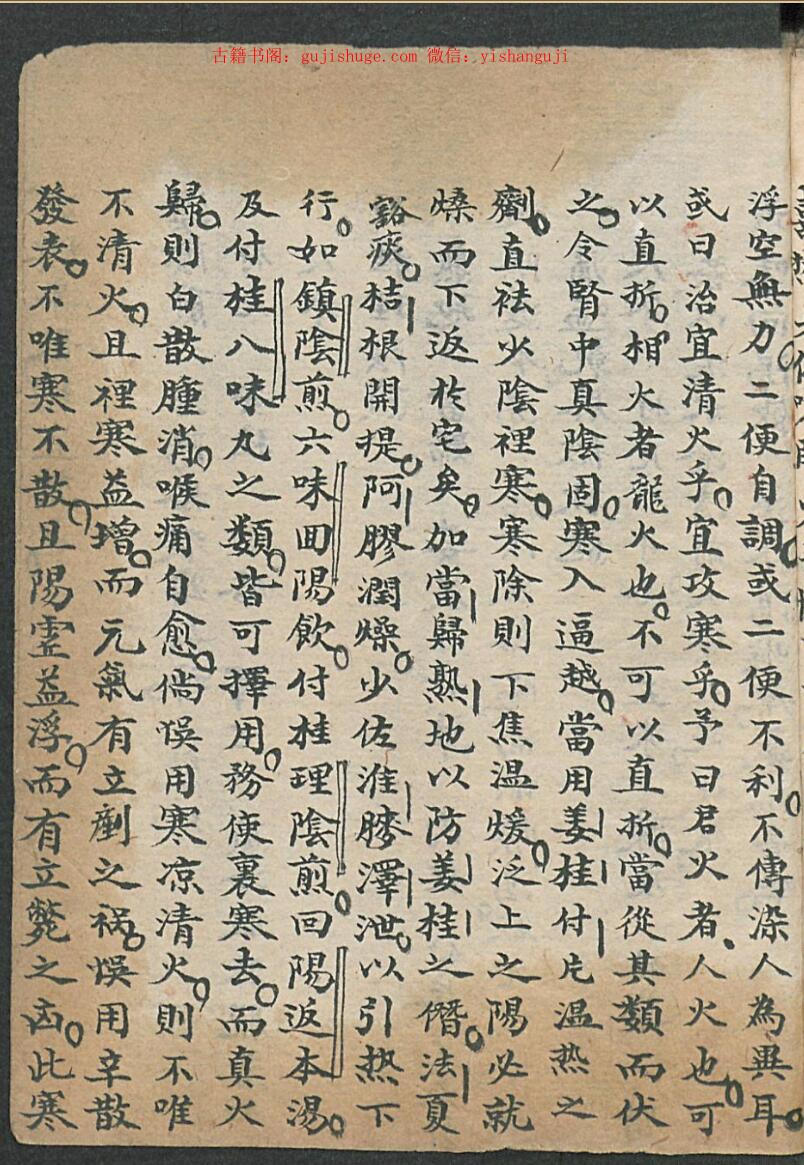 古籍书阁：gujishuge.com 微信：yishanguji
浮空無力。二便自調。或二便不利。不傳染人為異耳。
或曰治宜清火乎。宜攻寒乎。予曰君火者、人火也。可
以直折。相火者龍火也。不可以直折。當從其類而伏
之。令腎中真陰固。寒入逼越。當用姜桂付片温熱之
劑。直祛少陰裡寒。寒除則下焦温煖。泛上之陽必就
燥而下返於宅矣。加當歸熟地以防姜桂之僭。法夏
豁痰。桔根開提。阿膠潤燥。少佐淮膝澤泄。以引热下
行。如鎮陰煎。六味回陽飲。付桂理陰煎。回陽返本湯。
及付桂八味丸之類。皆可擇用。務使裏寒去。而真火
歸。則白散腫消。喉痛自愈。倘悞用寒凉清火。則不唯
不清火。且裡寒益增。而元氣有立劑之禍。悞用辛散
發表。不唯寒不散。且陽虛益浮。而有立斃之凶。此寒